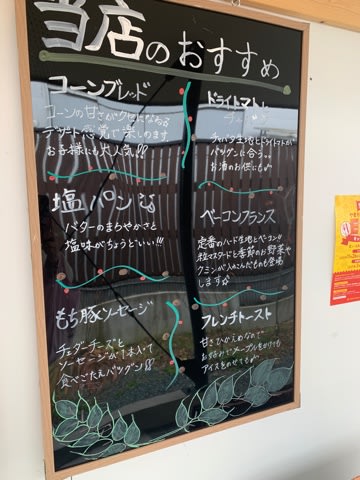 当店のおすすめ
コーンブレッド
コーンの甘さがクセになる♪
デザート感覚で楽しめます
お子様にも大人気!!
ドライトマト
チャバタ生地とドライトマトが
バツグンに合う♪♪
お酒のお供にも
塩パン
バターのまろやかさと
塩味がちょうどいい!!!
ベーコンフランス
定番のハード生地とベーコン!!
粒マスタードと季節のお野菜や
クミンが入ったものも登場
します☆
もち豚ソーセージ
チェダーチーズと
ソーセージが1本入って
食べごたえバツグン
フレンチトースト
甘さひかえめなので
お好みでメープルをかけても
アイスをのせても